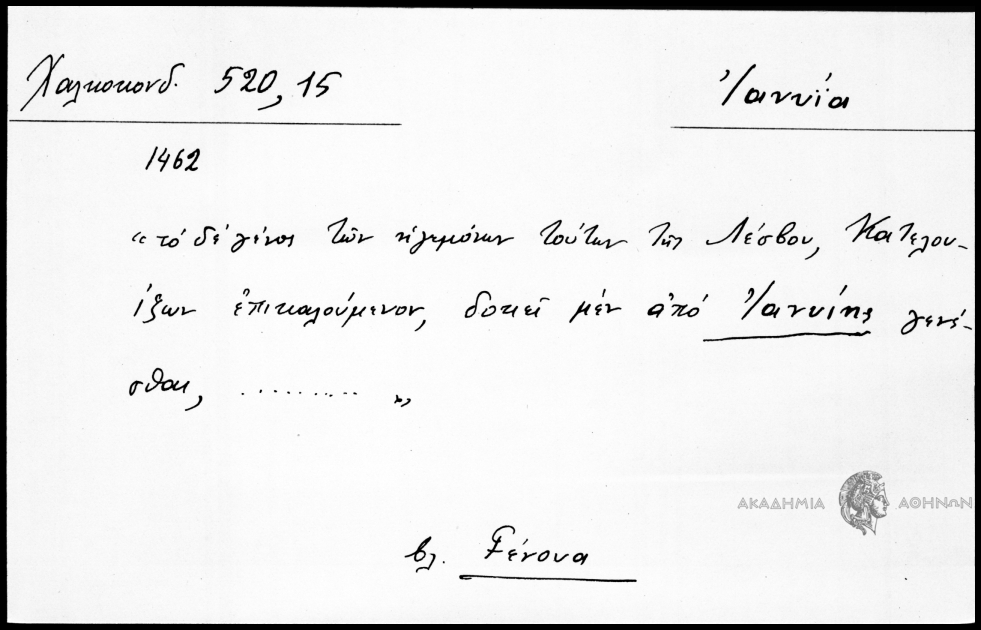 Χαλκοκονδ. 520, 15
Ἰαννυΐα
1462
«τό δέ γένος τῶν ἡγεμόνων τούτων τῆς Λέσβου, Κατελου-
ίξων ἐπικαλούμενον, δοκεῖ μέν ἀπό Ἰαννυίης γενέ-
σθαι, .......... »
ΑΚΑΔΗΜΙΑ ΑΘΗΝΩΝ
βλ. Γένουα